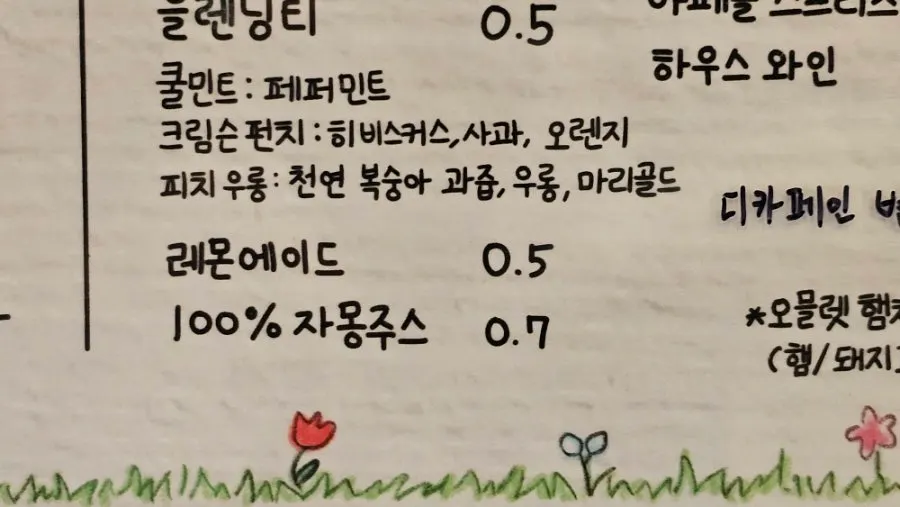 블렌딩티 0.5
쿨민트 : 페퍼민트
크림슨펀치 : 히비스커스, 사과, 오렌지
피치우롱 : 천연 복숭아 과즙, 우롱, 마리골드
레몬에이드 0.5
100% 자몽주스 0.7
하우스 와인
디카페인
*오믈렛
(햄/돼지